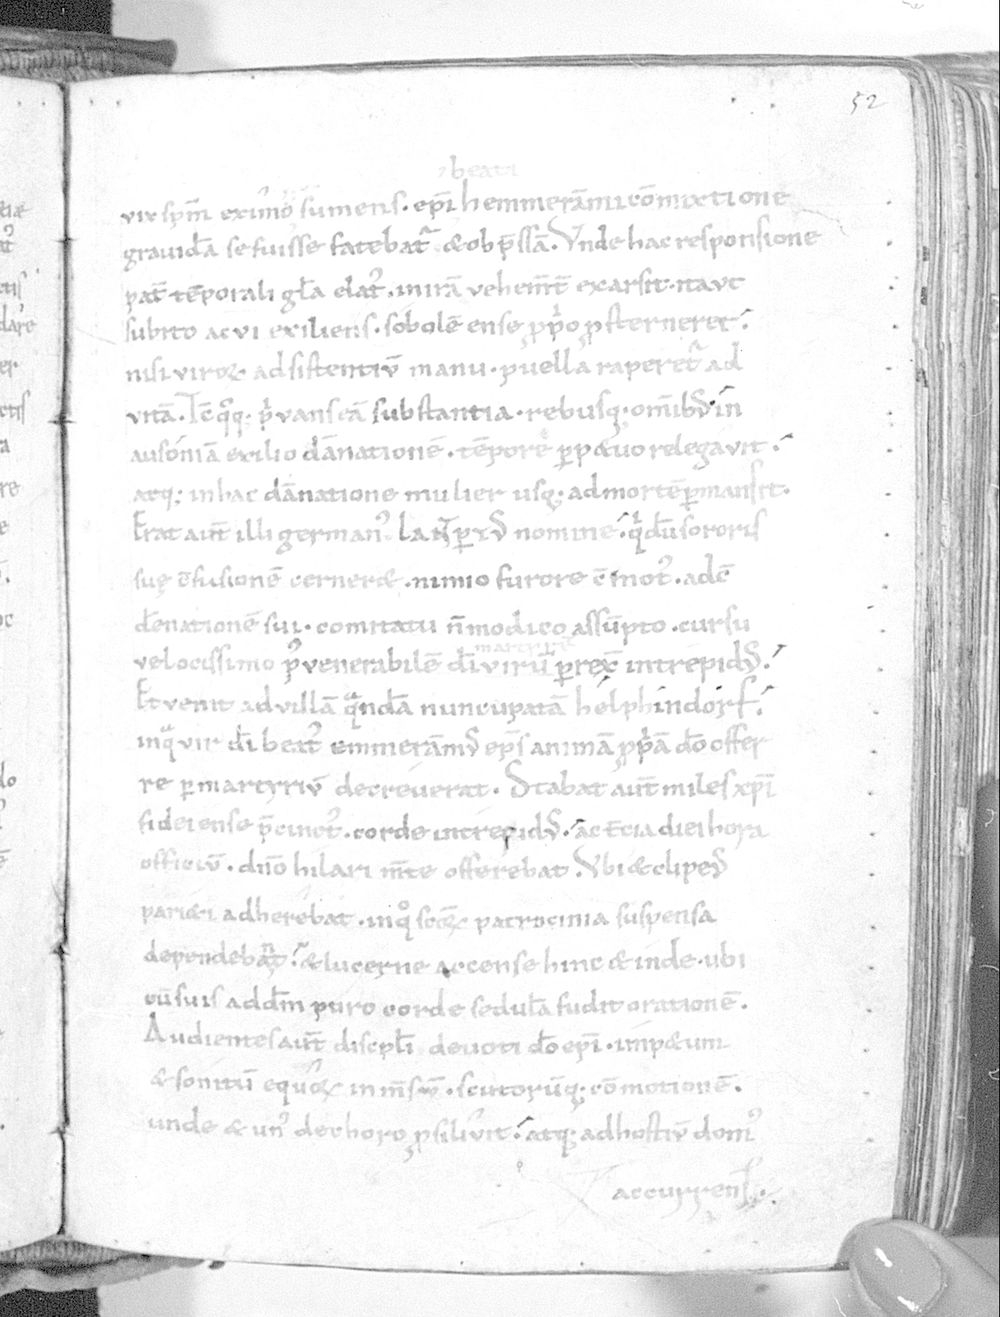 52
beati
vix spm̄ eximo sumens. epī hemmerāmi cōmixtione
grauidā se fuisse fatebat᷑ & obp̄ssā. Vnde hac responsione
pat̄ tēporali gl̄a elat᷒. mirā vehem̄t̄ exarsit. itaut
subito ac vi exiliens. sobolē ense ꝓpͥo ꝓsterneret.
nisi viroꝝ adsistentiū manu. puella raperet᷑ ad
vitā. substantia. rebusq; omīb᷒ in
ausoniā exilio dānationē. tēpore ꝑpetuo relegauit.
atq; in hac dānatione mulier usq; ad mortē ꝑmansit.
Erat aut̄ illi german᷒ nomine. qͥ dū sororis
suę ēfusionē cerneret. nimio furore ē mot᷒. adē
denationē sui. comitatu n̄ modico assūpto. cursu
martyrē
velocissimo p᷒ venerabilē dī virū ꝑrex̄ intrepid᷒.
Et venit ad villā qͣndā nuncupatā helphindorf.
in qͣ vir dī beat᷒ emmerām᷒ ep̄s animā ꝓpͥā dō offer
re ꝑ martyriū decreuerat. Stabat aut̄ miles xp̄i
fidei ense p̄cinct᷒. corde intrepid᷒. ac t̄cia diei hora
officiū. dn̄o hilari m̄te offerebat. Vbi & clipe᷒
parieti adherebat. in qͦ sc̄oꝝ patrocinia suspensa
dependebant. & lucerne accense hinc & inde. ubi
cū suis ad dm̄ puro corde sedula fudit orationē.
Audientes aut̄ discipl̄i deuoti dō epī. impetum
& sonitū equoꝝ scutorūq; cōmotionē.
unde & un᷒ de choro ꝓsiliuit. atq; ad hostiū dom᷒
accurrens.